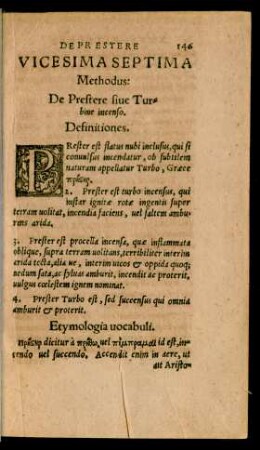 DE PRESTERE 146
VICESIMA SEPTIMA
Methodus:
De Prestere siue Tur-
bine incenso.
Definitiones.
PRester est flatus nubi inclusus, qui si
conuulsus incendatur, ob subitem
naturam appellatur Turbo, Græce
πρηςηρ.
2. Prester est turbo incensus, qui
instar ignitæ rotæ ingentis super
terram uolitat, incendia faciens, uel saltem ambu-
rens arida.
3. Prester est procella incensa, quæ inflammata
oblique, supra terram uolitans, terribiliter interim
arida tecta, alia ue, interim uicos & oppida quoq;
nedum sata, ac syluas amburit, incendit ac proterit,
uulgus cœlestem ignem nominat.
4. Prester Turbo est, sed succensus qui omnia
amburit & proterit.
Etymologia uocabuli.
πρηςηρ dicitur à πρήθω, uel πίμπραμαι id est, in-
cendo uel succendo. Accendit enim in aere, ut
ait Aristo-